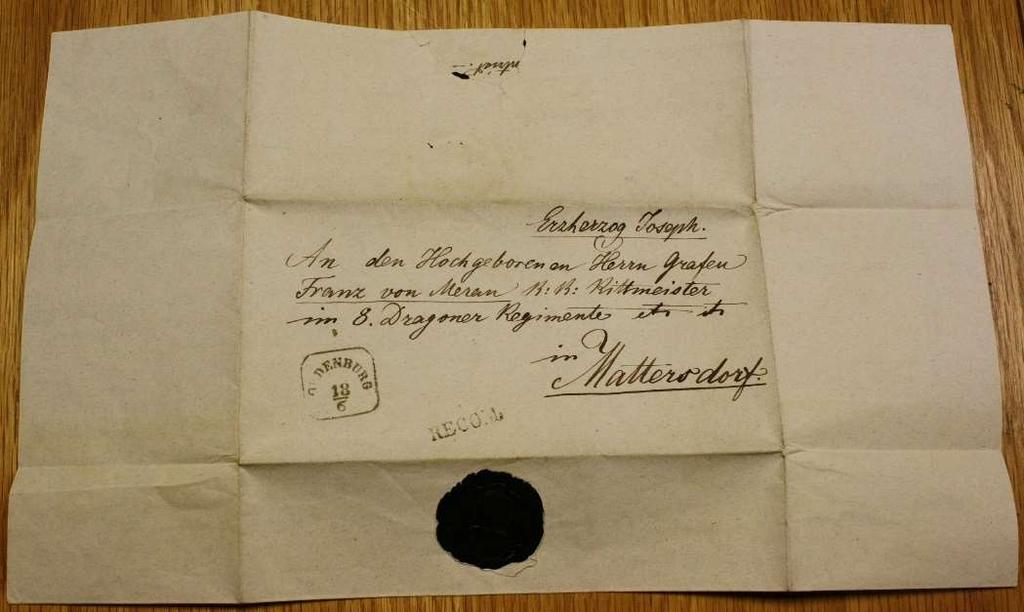 Erzherzog Joseph.
An den Hochgeborenen Herrn Grafen
Franz von Meran K: K: Rittmeister
im 8. Dragoner Regimente etc etc
in
Mattersdorf.
OEDENBURG
18
6
RECOM